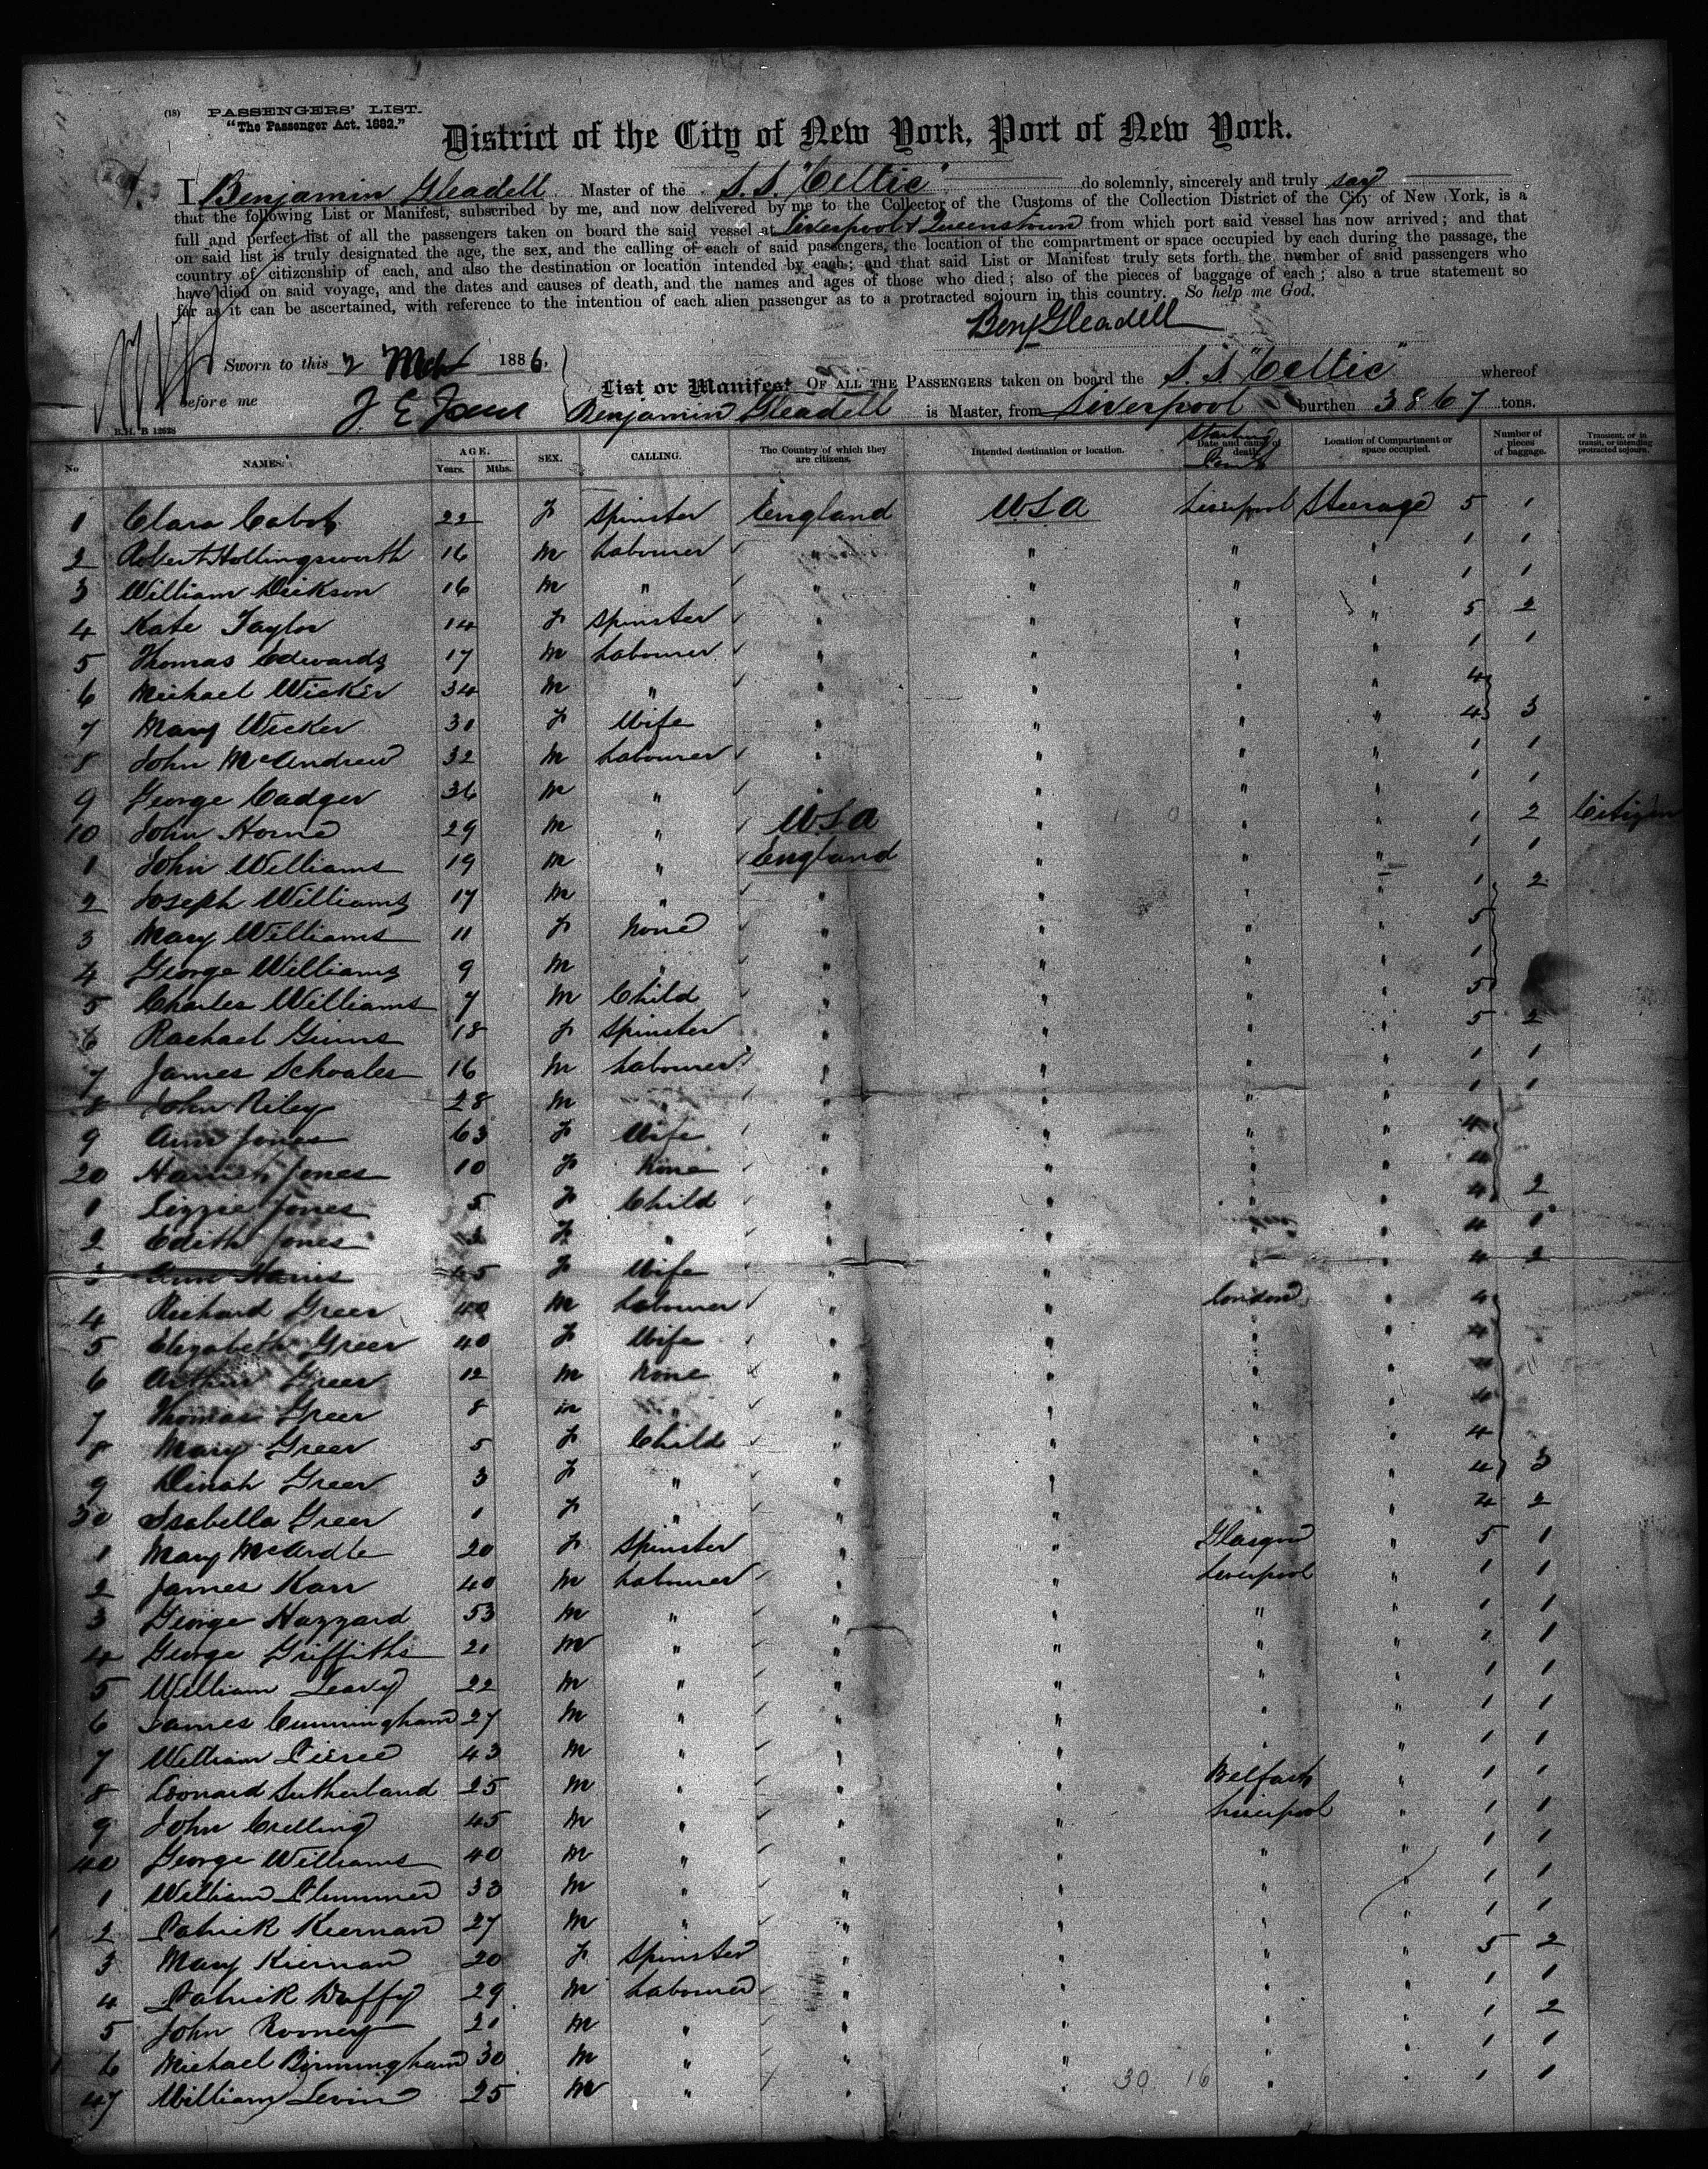 (18) PASSENGERS' LIST.
"The Passenger Act. 1882."
District of the City of New York, Port of New York.
I Benjamin Gleadell Master of the S.S. "Celtic" do solemnly, sincerely and truly say
that the following List or Manifest, subscribed by me, and now delivered by me to the Collector of the Customs of the Collection District of the City of New York, is a
full and perfect list of all the passengers taken on board the said vessel at Liverpool & Queenstown from which port said vessel has now arrived; and that
on said list is truly designated the age, the sex, and the calling of each of said passengers, the location of the compartment or space occupied by each during the passage, the
country of citizenship of each, and also the destination or location intended by each; and that said List or Manifest truly sets forth the number of said passengers who
have died on said voyage, and the dates and causes of death, and the names and ages of those who died; also of the pieces of baggage of each; also a true statement so
far as it can be ascertained, with reference to the intention of each alien passenger as to a protracted sojourn in this country. So help me God.
Benj Gleadell
Sworn to this 2 Mch 1886,
before me
List or Manifest OF ALL THE PASSENGERS taken on board the S.S. "Celtic" whereof
Benjamin Gleadell is Master, from Liverpool burthen 3867 tons.
B.H. B 12628
No. NAMES. AGE. Years. Mths. SEX. CALLING. The Country of which they are citizens. Intended destination or location. Date and cause of death. Location of Compartment or space occupied. Number of pieces of baggage. Transient, or in transit, or intending protracted sojourn.
1 Clara Cabot 22 F Spinster England USA Liverpool Steerage 5 1
2 Robert Hollingsworth 16 M Labourer " " " " 1 1
3 William Dickson 16 M " " " " " 1 1
4 Kate Taylor 14 F Spinster " " " " 5 2
5 Thomas Edwards 17 M Labourer " " " " 1 1
6 Michael Wicker 34 M " " " " " 4
7 Mary Wicker 30 F Wife " " " " 4 3
8 John McAndrew 32 M Labourer " " " " 1 1
9 George Cadger 36 M " " " " " 1 1
10 John Horne 29 M " USA " " " 1 2 Citizen
1 John Williams 19 M " England " " " 1 1
2 Joseph Williams 17 M " " " " " 1 2
3 Mary Williams 11 F None " " " " 5
4 George Williams 9 M " " " " " 1
5 Charles Williams 7 M Child " " " " 5
6 Rachael Ginns 18 F Spinster " " " " 5 2
7 James Schoales 16 M Labourer " " " " 1 1
8 John Riley 28 M " " " " " 1 1
9 Ann Jones 63 F Wife " " " " 4
20 Jones 10 F None " " " " 4
1 Lizzie Jones 5 F Child " " " " 4 2
2 Edith Jones F " " " " " 4 1
3 Ann Harris 45 F Wife " " " " 4 2
4 Richard Greer 40 M Labourer " " London " 4
5 Elizabeth Greer 40 F Wife " " " " 4
6 Arthur Greer 12 M None " " " " 4
7 Thomas Greer 8 M " " " " " 4
8 Mary Greer 5 F Child " " " " 4
9 Dinah Greer 3 F " " " " " 4 3
30 Isabella Greer 1 F " " " " " 4 2
1 Mary McArdle 20 F Spinster " " Glasgow " 5 1
2 James Karr 40 M Labourer " " Liverpool " 1 1
3 George Hazzard 53 M " " " " " 1 1
4 George Griffiths 21 M " " " " " 1 1
5 William Leavy 22 M " " " " " 1 1
6 James Cunningham 27 M " " " " " 1 1
7 William Pierce 43 M " " " " " 1 1
8 Leonard Sutherland 25 M " " " Belfast " 1 1
9 John Crelling 45 M " " " Liverpool " 1 1
40 George Williams 40 M " " " " " 1 1
1 William Plummer 33 M " " " " " 1 1
2 Patrick Kiernan 27 M " " " " " 1 1
3 Mary Kiernan 20 F Spinster " " " " 5 2
4 Patrick Duffy 29 M Labourer " " " " 1 1
5 John Rooney 21 M " " " " " 1 2
6 Michael Birmingham 30 M " " " " " 1 1
47 William Levin 25 M " " " " " 1 1
30 16